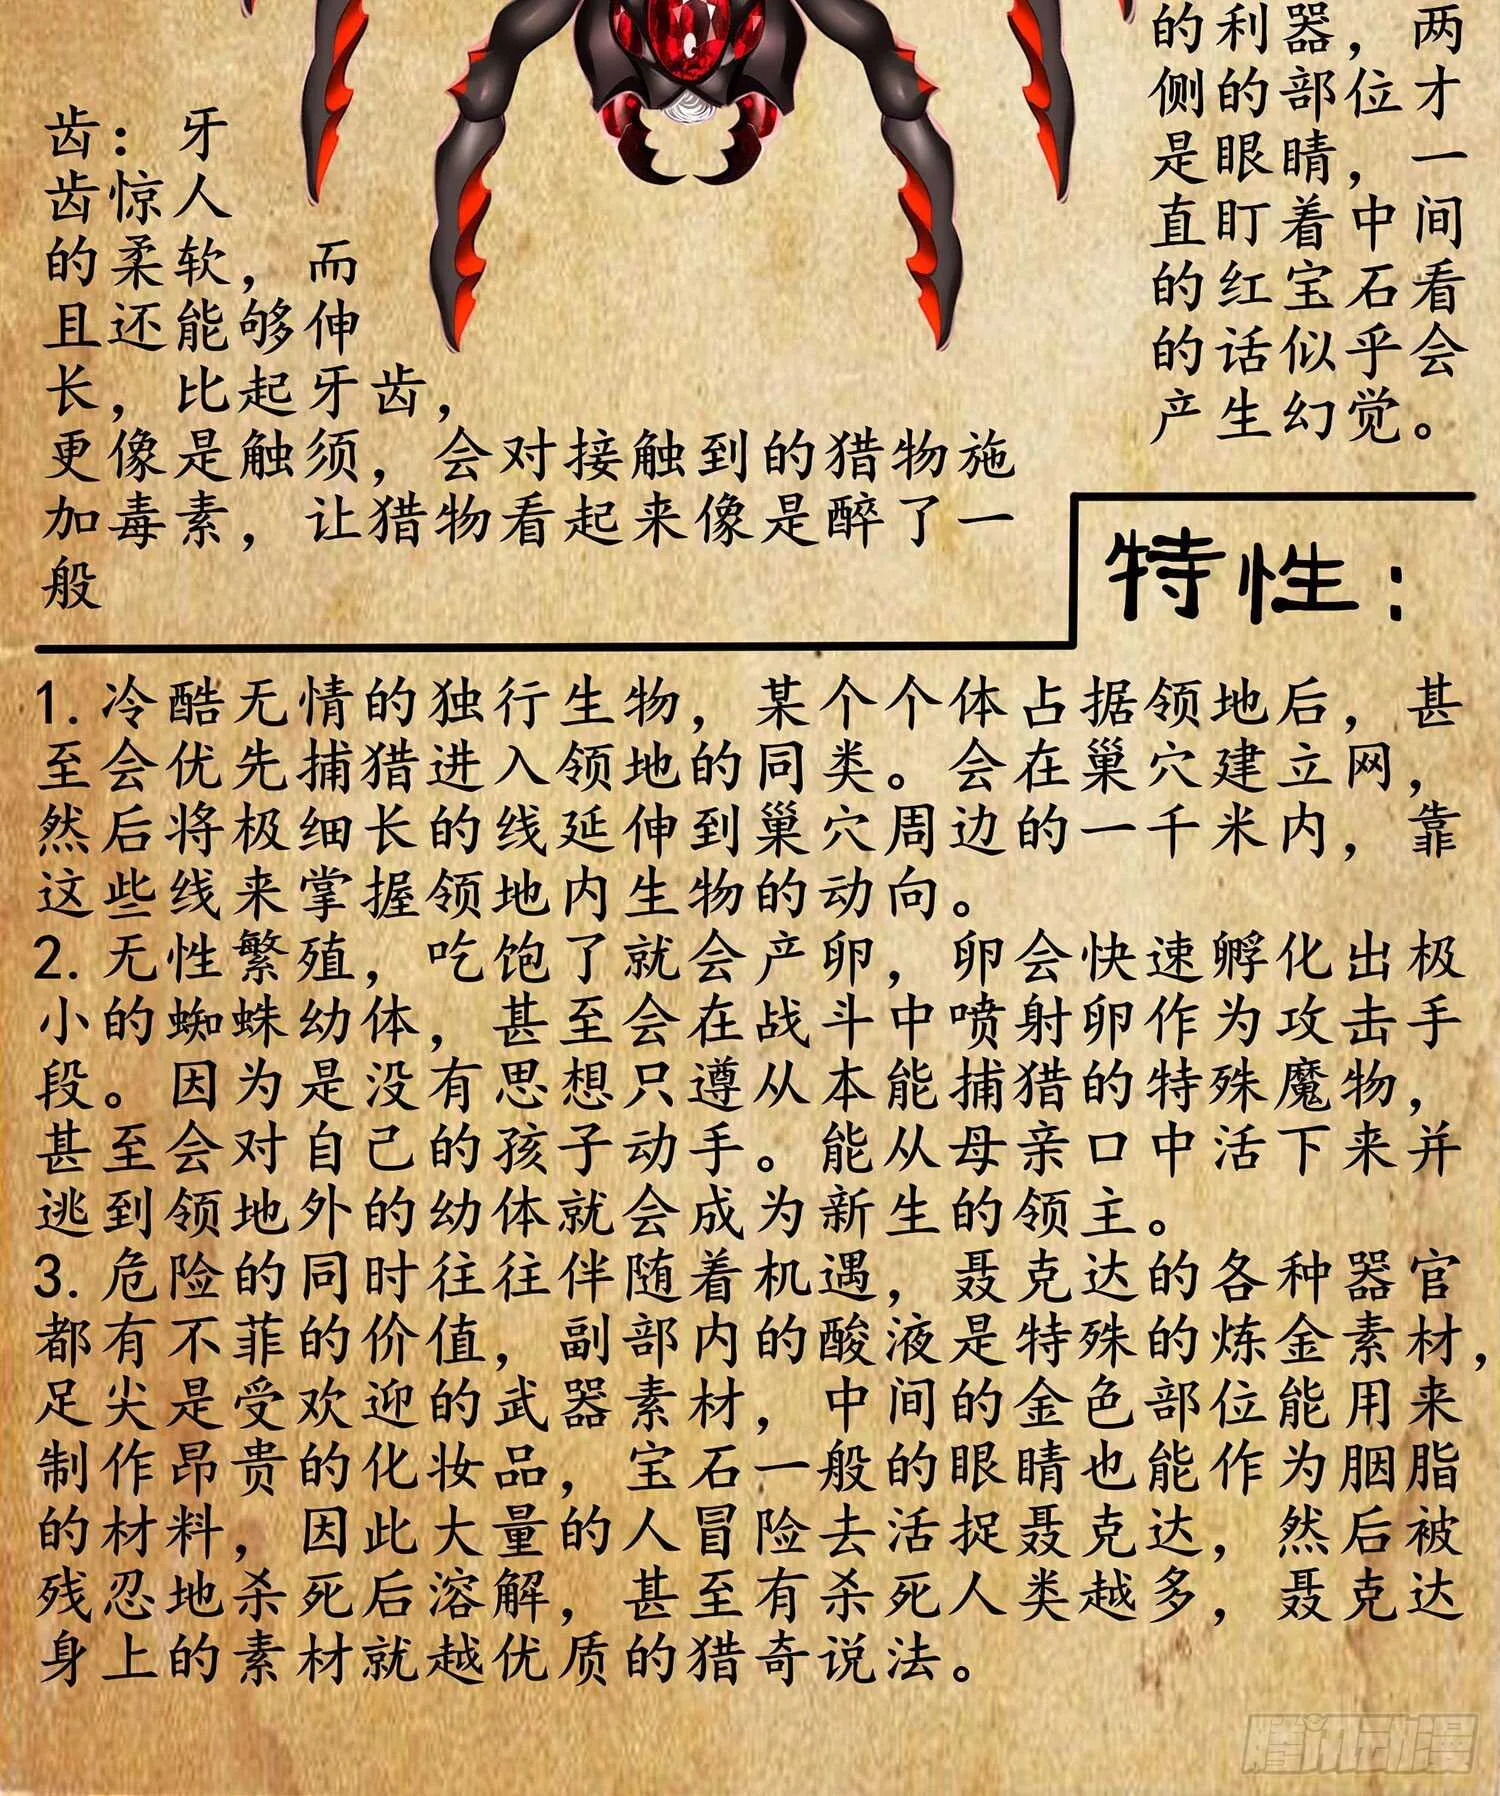 的利器，两
侧的部位才
是眼睛，一
直盯着中间
的红宝石看
的话似乎会
产生幻觉。
齿：牙
齿惊人
的柔软，而
且还能够伸
长，比起牙齿，
更像是触须，会对接触到的猎物施
加毒素，让猎物看起来像是醉了一
般
特性：
1.冷酷无情的独行生物，某个个体占据领地后，甚
至会优先捕猎进入领地的同类。会在巢穴建立网，
然后将极细长的线延伸到巢穴周边的一千米内，靠
这些线来掌握领地内生物的动向。
2.无性繁殖，吃饱了就会产卵，卵会快速孵化出极
小的蜘蛛幼体，甚至会在战斗中喷射卵作为攻击手
段。因为是没有思想只遵从本能捕猎的特殊魔物，
甚至会对自己的孩子动手。能从母亲口中活下来并
逃到领地外的幼体就会成为新生的领主。
3.危险的同时往往伴随着机遇，聂克达的各种器官
都有不菲的价值，副部内的酸液是特殊的炼金素材，
足尖是受欢迎的武器素材，中间的金色部位能用来
制作昂贵的化妆品，宝石一般的眼睛也能作为胭脂
的材料，因此大量的人冒险去活捉聂克达，然后被
残忍地杀死后溶解，甚至有杀死人类越多，聂克达
身上的素材就越优质的猎奇说法。
腾讯动漫